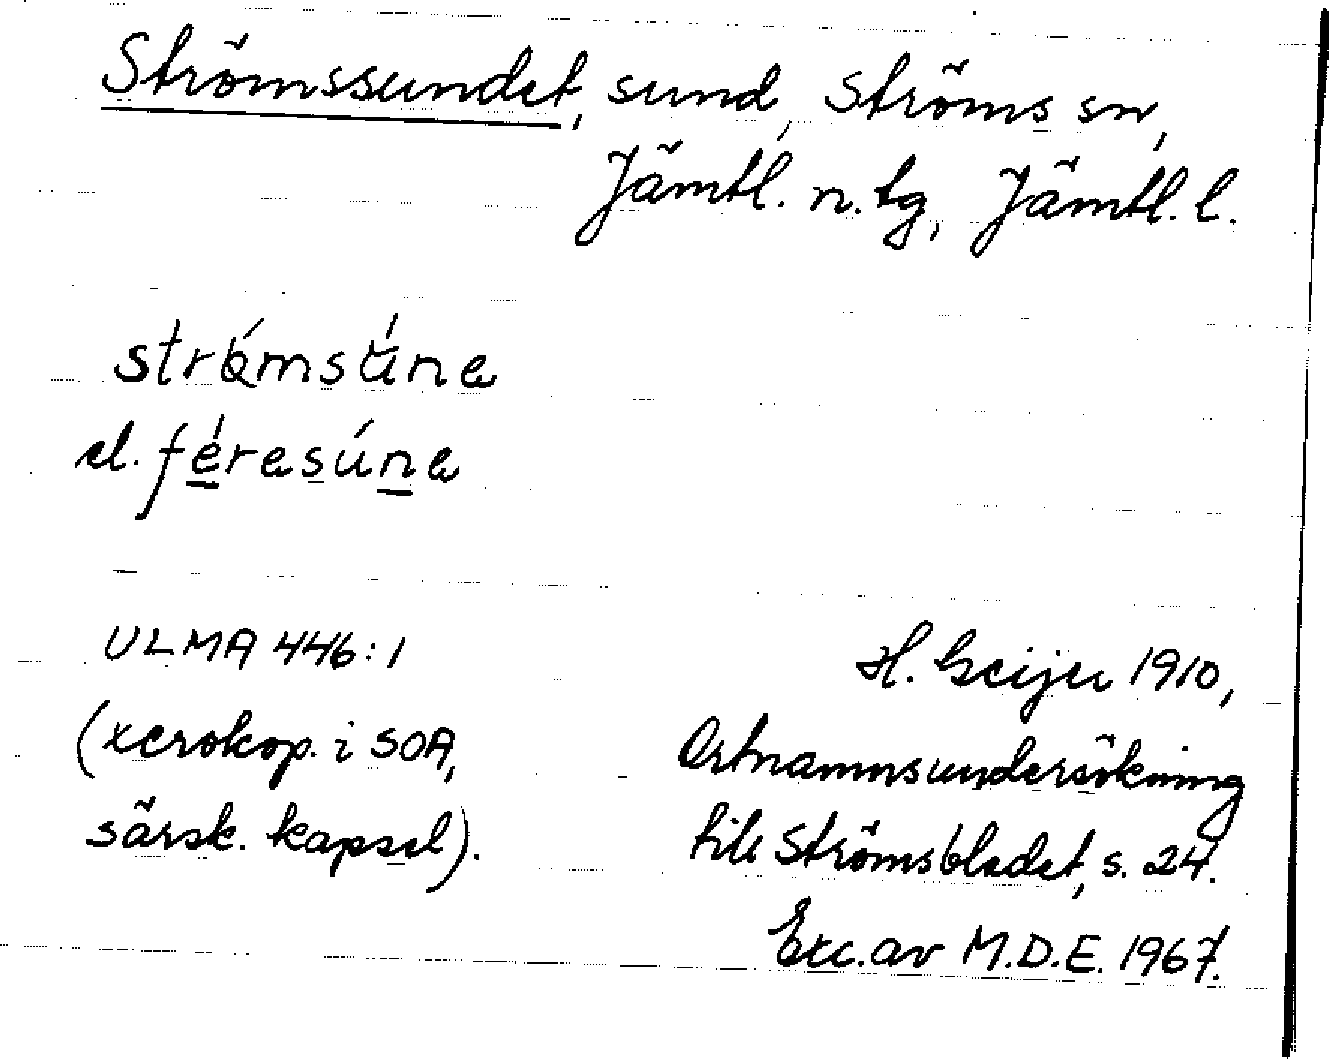 Strömssundet, sund, Ströms sn,
Jämtl. n. tg, Jämtl. l.
strǿmsúna
el. féresúna
ULMA 446:1
(xerokop. i SOA,
särsk. kapsel).
H. Geijer 1910,
Ortnamnsundersökning
till Strömsbladet, s. 24.
Exc. av M.D.E. 1967.